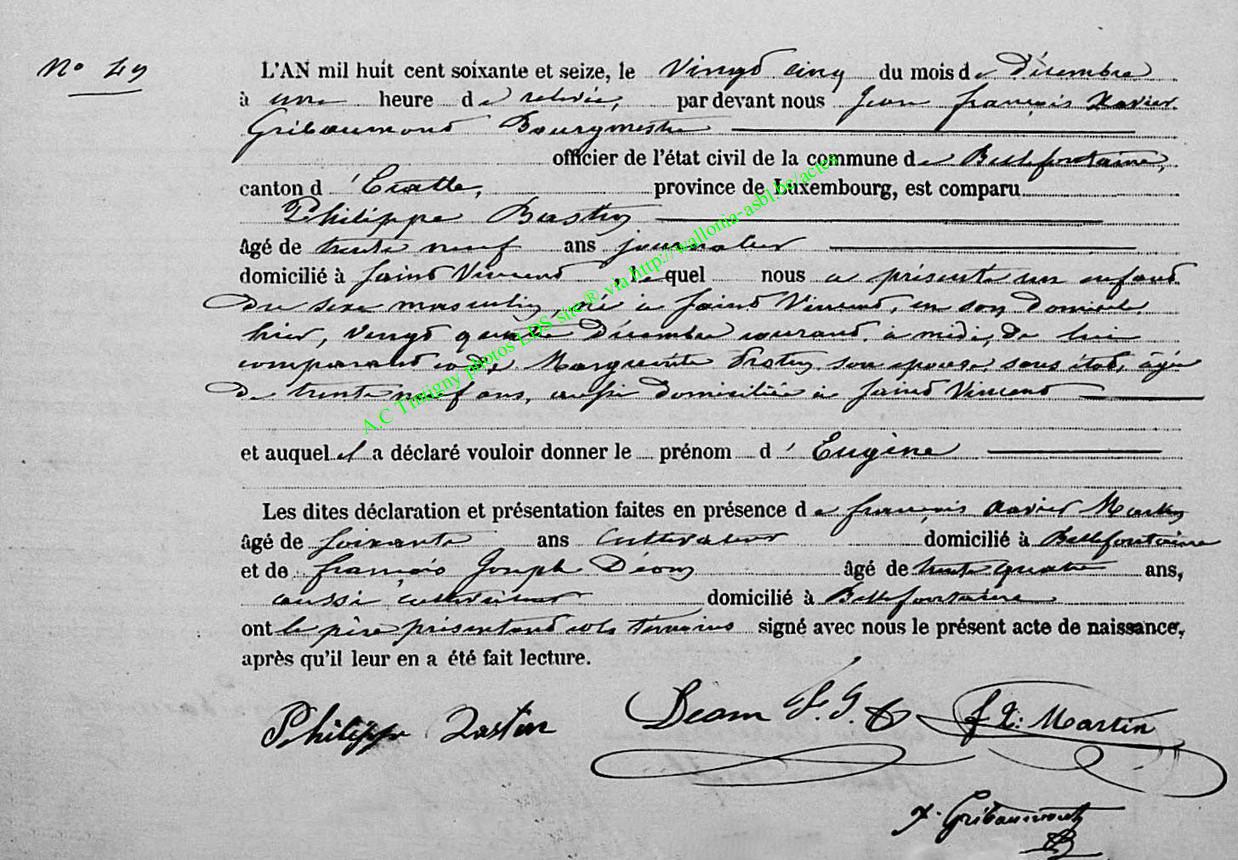 N° 49
L'AN mil huit cent soixante et seize, le Vingt cinq du mois de Décembre
à une heure de relevée, par devant nous Jean françois Xavier
Gribaumont Bourgmestre
officier de l'état civil de la commune de Bellefontaine,
canton d'Etalle, province de Luxembourg, est comparu
Philippe Bastin
âgé de trente neuf ans journalier
domicilié à Saint Vincent, lequel nous a présenté un enfant
du sexe masculin, né à Saint Vincent, en son domicile
hier, vingt quatre Décembre courant, à midi, de lui
comparant et de Marguerite son épouse, sans état, âgée
de trente neuf ans, aussi domiciliée à Saint Vincent
et auquel il a déclaré vouloir donner le prénom d'Eugène
Les dites déclaration et présentation faites en présence de françois Xavier Martin
âgé de soixante ans Cultivateur domicilié à Bellefontaine
et de françois Joseph Déom âgé de trente quatre ans,
aussi cultivateur domicilié à Bellefontaine
ont le père présentant et les témoins signé avec nous le présent acte de naissance,
après qu'il leur en a été fait lecture.
Philippe Bastin
Déom F. J.
f X. Martin
X. Gribaumont
A.C Tintigny photos LDS site® via http://wallonia-asbl.be/actes